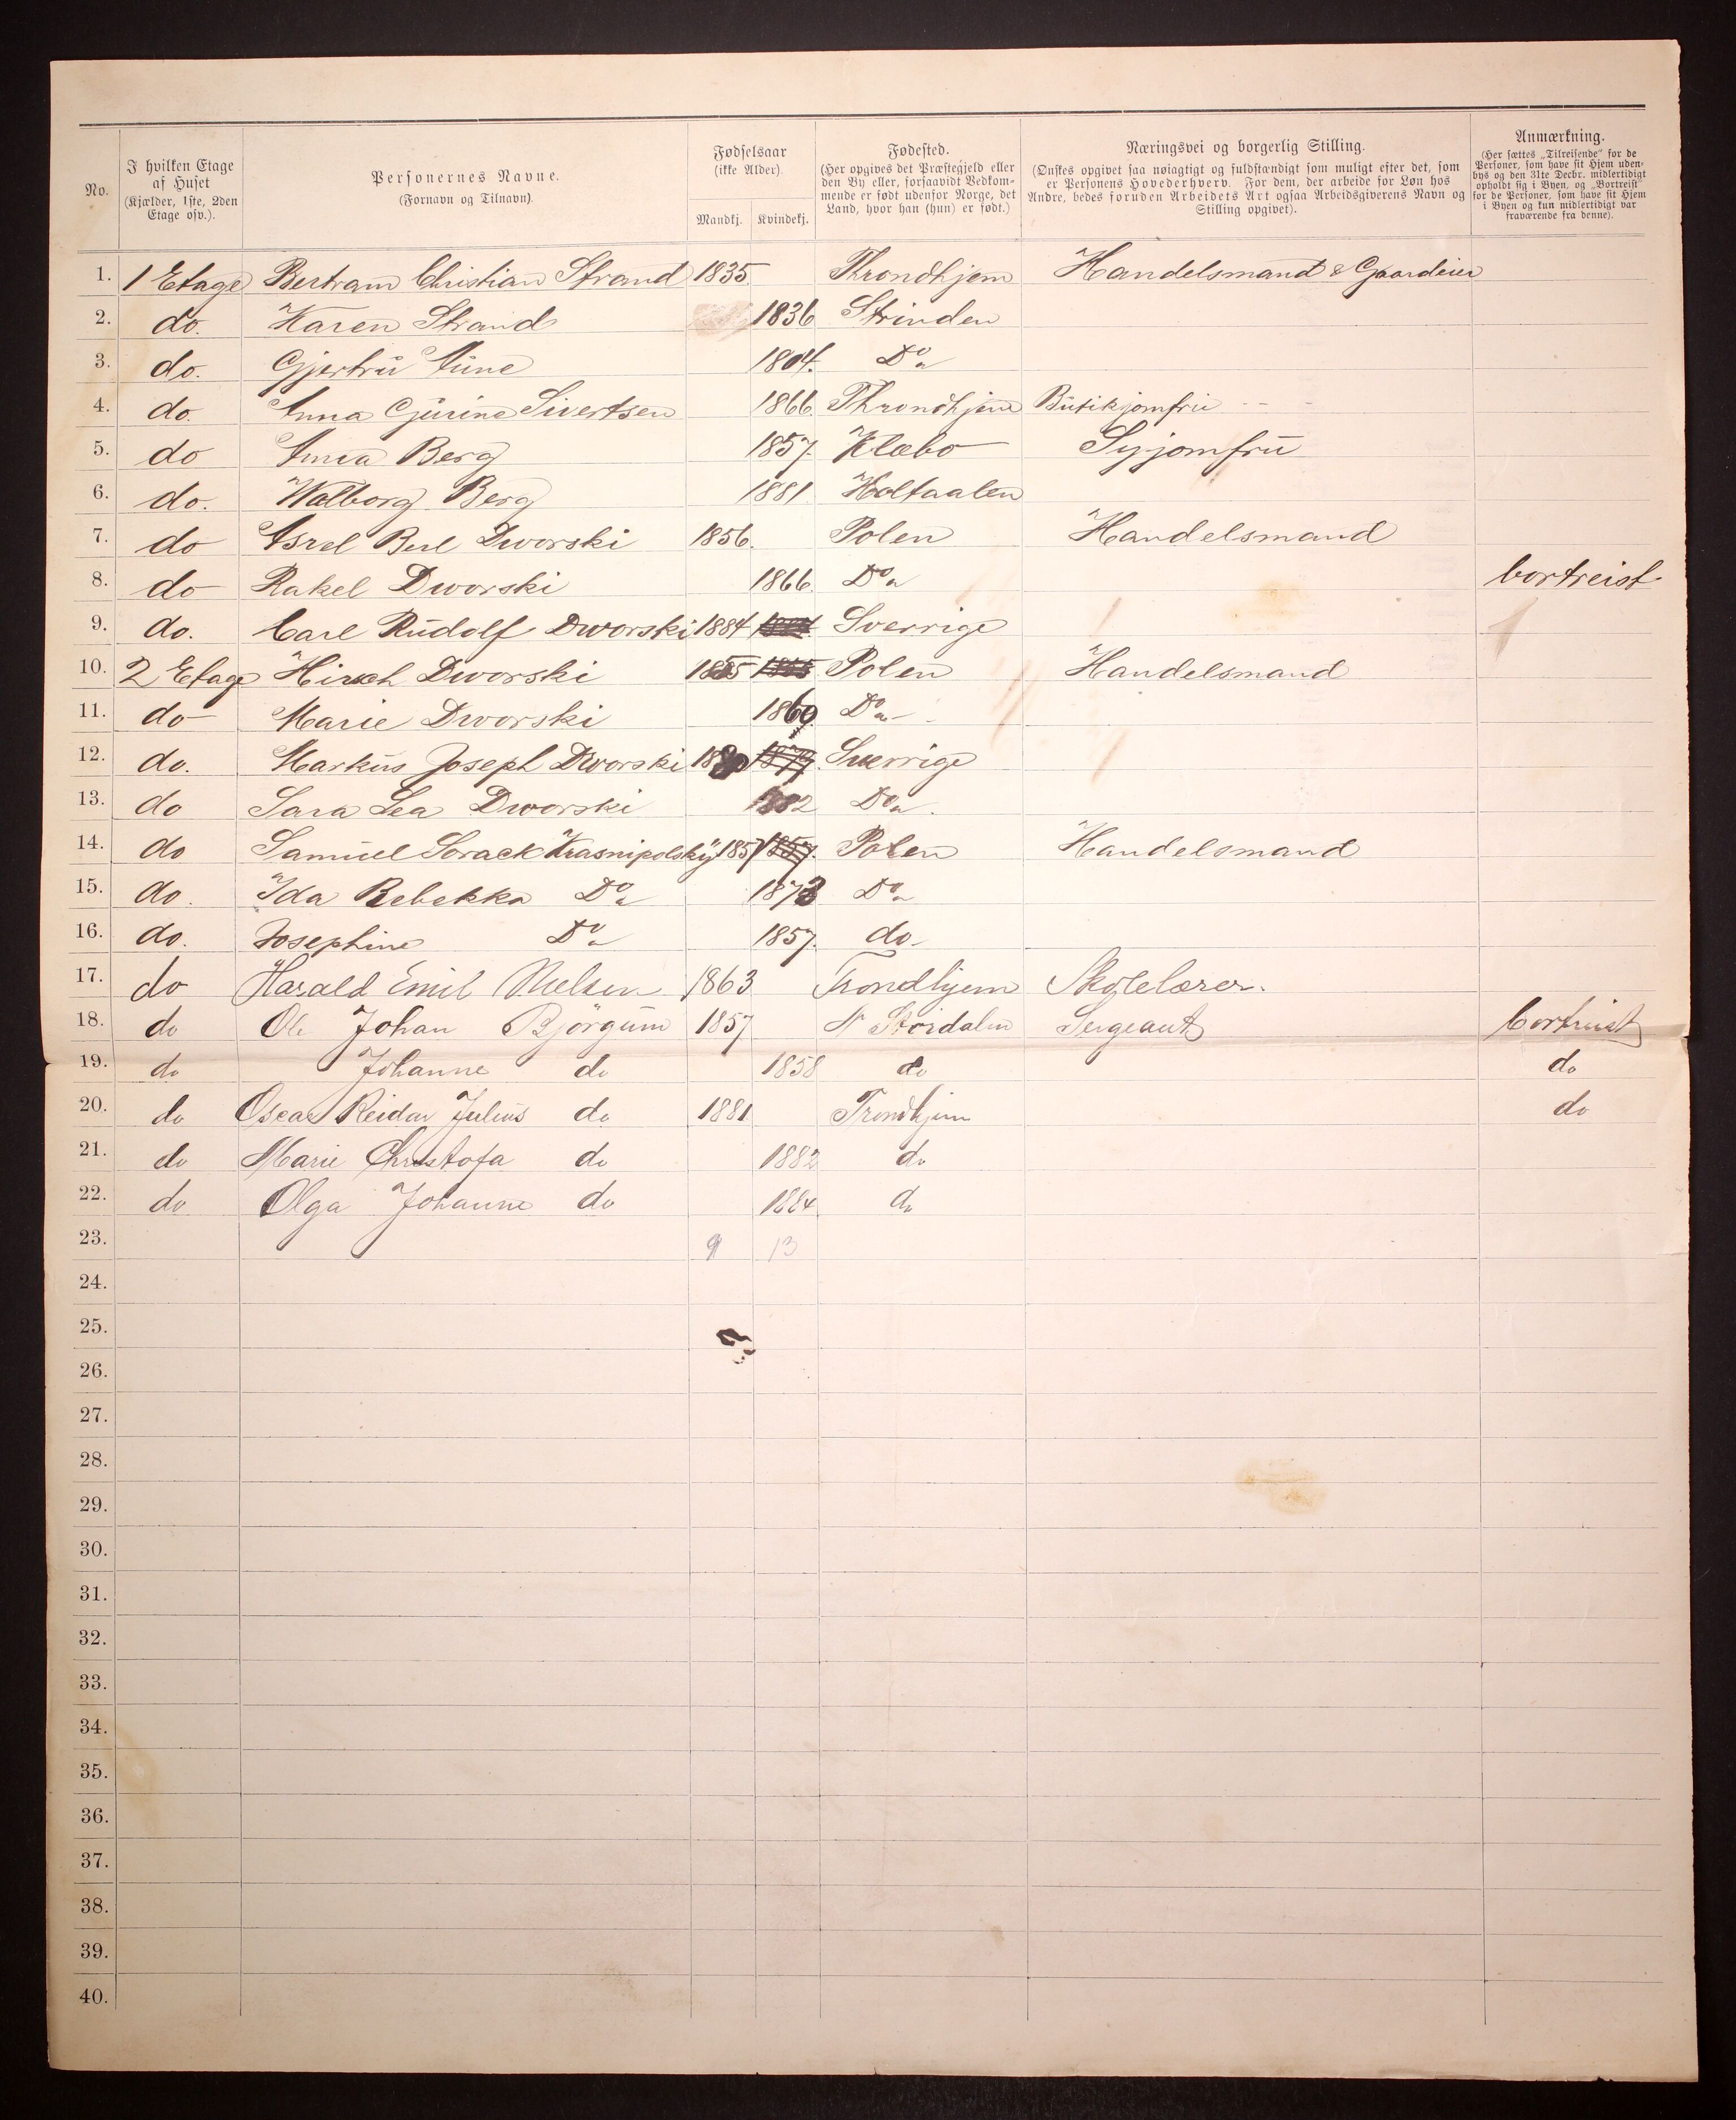 No.
I hvilken Etage af Huset (Kjælder, 1ste, 2den Etage osv.).
Personernes Navne. (Fornavn og Tilnavn).
Fødselsaar (ikke Alder). Mandkj. Kvindekj.
Fødested. (Her opgives det Præstegjeld eller den By eller, forsaavidt Vedkommende er født udenfor Norge, det Land, hvor han (hun) er født.)
Næringsvei og borgerlig Stilling. (Ønskes opgivet saa nøiagtigt og fuldstændigt som muligt efter det, som er Personens Hovederhverv. For dem, der arbeide for Løn hos Andre, bedes foruden Arbeidets Art ogsaa Arbeidsgiverens Navn og Stilling opgivet).
Anmærkning. (Her sættes „Tilreisende" for de Personer, som have sit Hjem udenbys og den 31te Decbr. midlertidigt opholdt sig i Byen, og „Bortreist" for de Personer, som have sit Hjem i Byen og kun midlertidigt var fraværende fra denne).
1. 1 Etage Bertram Christian Strand 1835 Throndhjem Handelsmand & Gaardeier
2. do. Karen Strand 1836 Strinden
3. do. Gjertru Aune 1804. Do
4. do. Anna Gurine Sivertsen 1866. Throndhjem Butikjomfru
5. do Anna Berg 1857. Klæbo Syjomfru
6. do. Walborg Berg 1881 Holtaalen
7. do Asrel Berl Dworski 1856. Polen Handelsmand
8. do Rakel Dworski 1866. Do bortreist
9. do. Carl Rudolf Dworski 1884 Sverrige
10. 2 Etage Hirsch Dworski 1855 1855 Polen Handelsmand
11. do Marie Dworski 1860. Do
12. do. Markus Joseph Dworski 1880 1879 Sverrige
13. do Sara Lea Dworski 1882 Do.
14. do Samuel Sorack Krasnipolsky 1857 1857. Polen Handelsmand
15. do. Ida Rebekka Do 1873 Do
16. do. Josephine Do 1857. do
17. do Harald Emil Nielsen 1863 Trondhjem Skolelærer.
18. do Ole Johan Bjørgum 1857 N Størdalen Sergeant bortreist
19. do Johanne do 1858 do do
20. do Oscar Reidar Julius do 1881 Trondhjem do
21. do Marie Christofa do 1882 do
22. do Olga Johanne do 1884 do
23. 9 13
24.
25.
26.
27.
28.
29.
30.
31.
32.
33.
34.
35.
36.
37.
38.
39.
40.